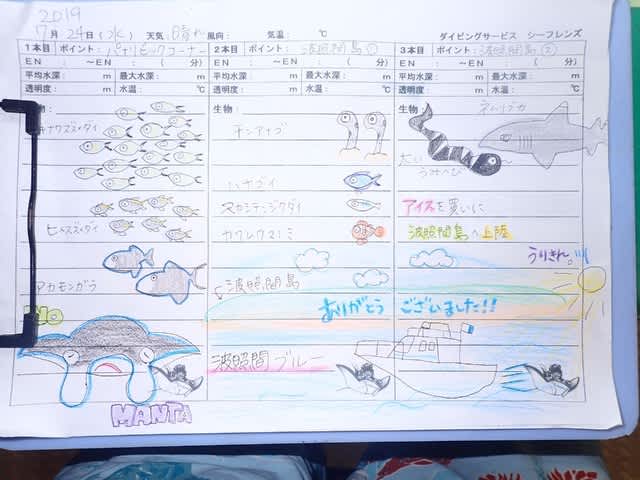 2019
7月24日(水) 天気:晴れ 風向: 気温: ℃ ダイビングサービス シーフレンズ
1本目 ポイント:パナリビックコーナー
EN : ～EN : ( 分)
平均水深: m 最大水深: m
透明度: m 水温: ℃
生物:
キナワスズメダイ
ヒメスズメダイ
アカモンガラ
NO
MANTA
2本目 ポイント:波照間島①
EN : ～EN : ( 分)
平均水深: m 最大水深: m
透明度: m 水温: ℃
生物:
チンアナゴ
ハナゴイ
スカシテンジクダイ
カクレクマノミ
波照間島
波照間ブルー
3本目 ポイント:波照間島②
EN : ～EN : ( 分)
平均水深: m 最大水深: m
透明度: m 水温: ℃
生物:
ネムリブカ
太い
うみへび
アイスを買いに
波照間島へ上陸
うりきれ。
ありがとう ございました!!